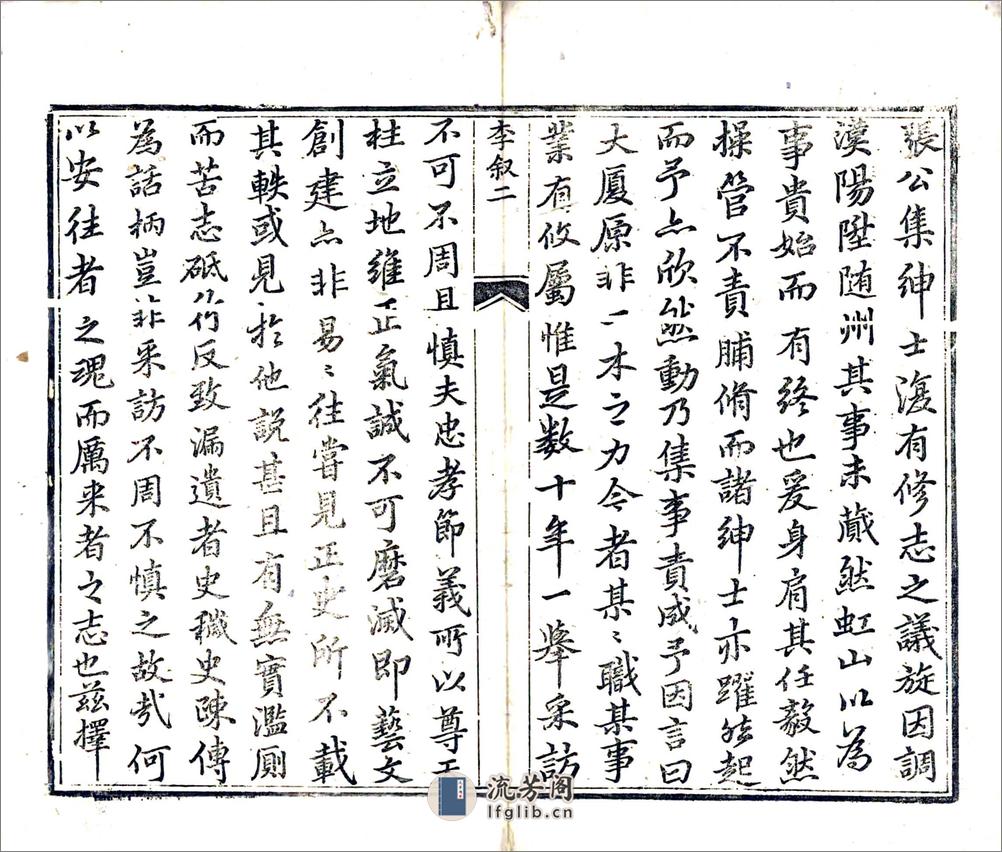 張公集紳士復有修志之議旋因調
漢陽陞随州其事未蕆然虹山以為
事貴始而有終也爰身肩其任毅然
操管不責脯脩而諸紳士亦躍然起
而予亦欣然動乃集事責成予因言曰
大厦原非一木之力今者某〻職某事
業有攸屬惟是数十年一舉采訪
李叙二
不可不周且慎夫忠孝節義所以尊
柱立地維正氣誠不可磨滅即藝文
創建亦非易〻往嘗見正史所不載
其軼或見於他説甚且有無實濫厠
而苦志砥行反致漏遺者史穢史陳傳
為話柄豈非采訪不周不慎之故哉何
以安往者之魂而厲来者之志也兹擇
流芳阁
lfglib.cn